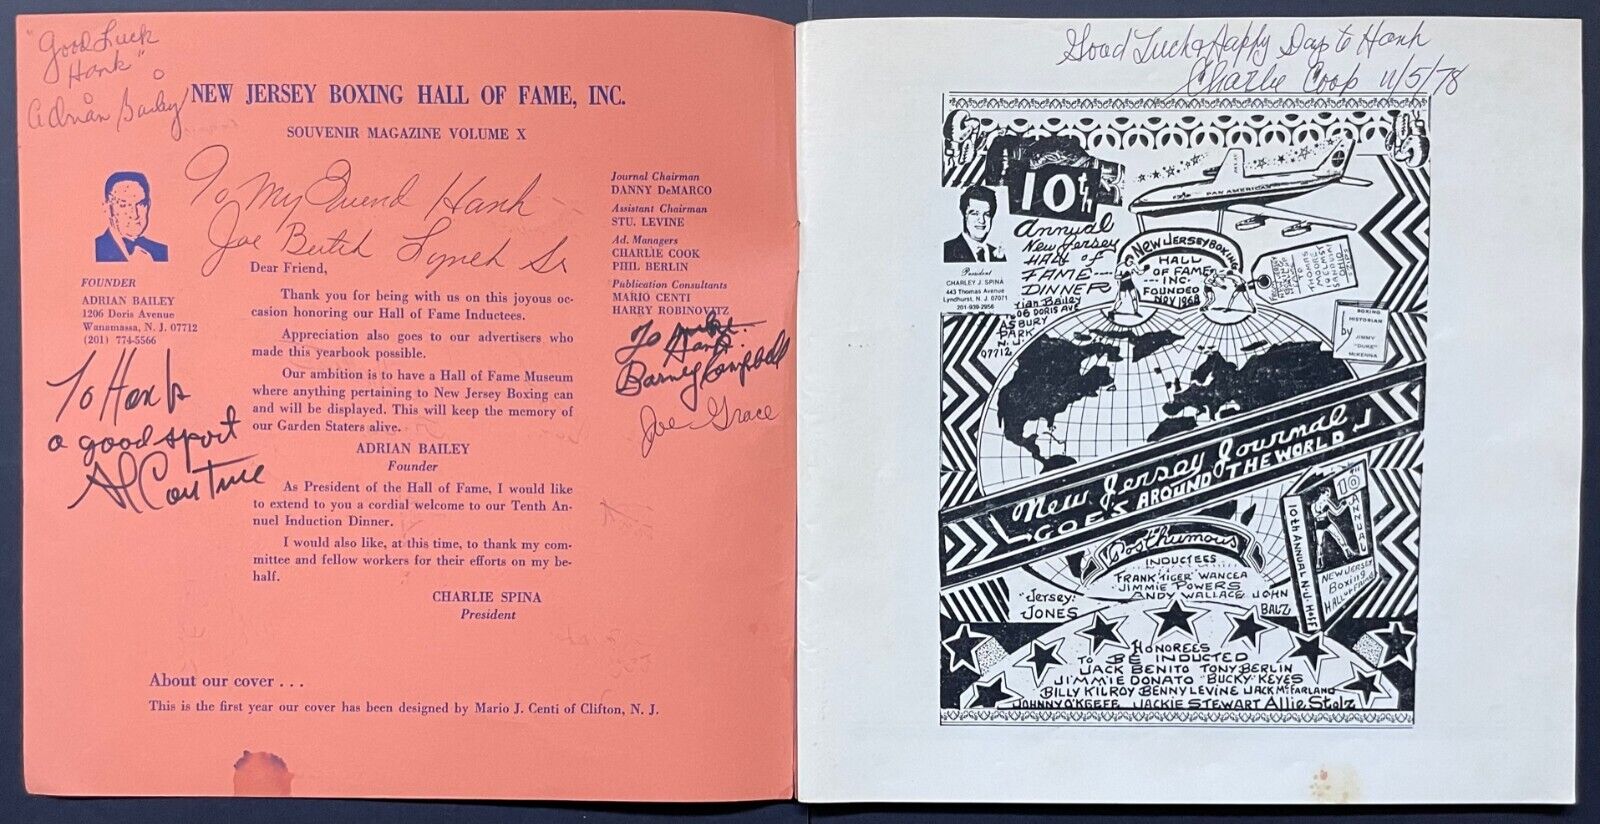 "Good Luck
Hank"
Adrian Bailey
NEW JERSEY BOXING HALL OF FAME, INC.
SOUVENIR MAGAZINE VOLUME X
To My Friend Hank
Joe Butch Lynch Sr
FOUNDER
ADRIAN BAILEY
1206 Doris Avenue
Wanamassa, N. J. 07712
(201) 774-5566
Journal Chairman
DANNY DeMARCO
Assistant Chairman
STU. LEVINE
Ad. Managers
CHARLIE COOK
PHIL BERLIN
Publication Consultants
MARIO CENTI
HARRY ROBINOVITZ
To
Hank
Barney Campbell
Joe Grace
To Hank
a good sport
Al
Dear Friend,
Thank you for being with us on this joyous oc-
casion honoring our Hall of Fame Inductees.
Appreciation also goes to our advertisers who
made this yearbook possible.
Our ambition is to have a Hall of Fame Museum
where anything pertaining to New Jersey Boxing can
and will be displayed. This will keep the memory of
our Garden Staters alive.
ADRIAN BAILEY
Founder
As President of the Hall of Fame, I would like
to extend to you a cordial welcome to our Tenth An-
nuel Induction Dinner.
I would also like, at this time, to thank my com-
mittee and fellow workers for their efforts on my be-
half.
CHARLIE SPINA
President
About our cover . . .
This is the first year our cover has been designed by Mario J. Centi of Clifton, N. J.
Good Luck & Happy Days to Hank
Charlie 11/5/78
10th
Annual
New Jersey
HALL OF
FAME
DINNER
PAN AMERICAN
NEW JERSEY BOXING
HALL
OF FAME
INC.
FOUNDED
NOV 1968
President
CHARLEY J. SPINA
443 Thomas Avenue
Lyndhurst, N. J. 07071
201-939-2956
rian Bailey
1206 DORIS AVE
ASBURY
PARK
N.J.
07712
TO
THOMAS
MOORE
SANDUSKY
OHIO
BOXING
HISTORIAN
by
JIMMY
"DUKE"
McKENNA
New Jersey Journal
GOES AROUND THE WORLD
10th
ANNUAL
10th ANNUAL N.J. HOFF
NEW JERSEY
BOXING
HALL OF FAME
Posthumous
INDUCTEES
FRANK "TIGER" WANCEA
JIMMIE POWERS
ANDY WALLACE JOHN
"JERSEY"
JONES
BALZ
HONOREES
TO BE INDUCTED
JACK BENITO TONY BERLIN
JIMMIE DONATO "BUCKY" KEYES
BILLY KILROY BENNY LEVINE JACK McFARLAND
JOHNNY O'KEEFE JACKIE STEWART Allie Stolz